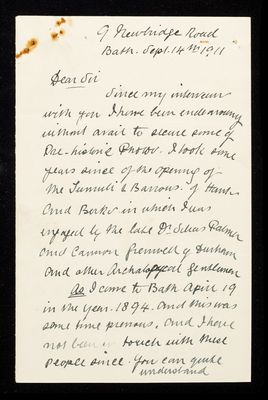 9 Newbridge Road
Bath. Sept. 14th 1911
Dear Sir
Since my interview
with you I have been endeavouring
without avail to secure some of
Pre-historic Photos. I took some
years since of the opening of
the Tumuli & Barrows. of Hants
and Berks in which I was
engaged by the late Dr. Silas Palmer
and Cannon Greenwell of Durham
and other Archaelogical Gentlemen
As I came to Bath April 19
in the year. 1894. and this was
some time previous, and I have
not been in touch with these
people since. You can quite
understand